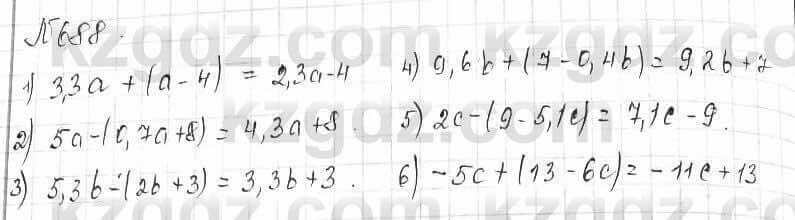 №688.
1) 3,3a + (a - 4) = 2,3a - 4
2) 5a - (0,7a + 8) = 4,3a + 8.
3) 5,3b - (2b + 3) = 3,3b + 3.
4) 9,6b + (7 - 0,4b) = 9,2b + 7
5) 2c - (9 - 5,1c) = 7,1c - 9.
6) -5c + (13 - 6c) = -11c + 13